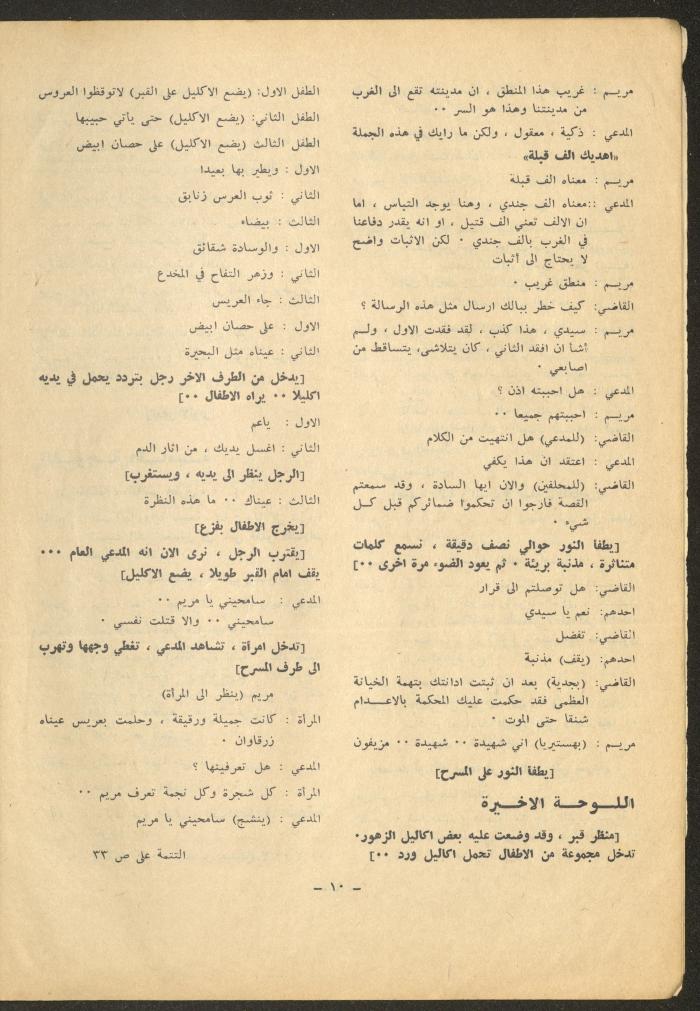 مريـم : غريب هذا المنطق ، ان مدينته تقع الى الغرب
من مدينتنا وهذا هو السر ٠٠
المدعي : ذكية ، معقول ، ولكن ما رايك في هذه الجملة
«اهديك الف قبلة»
مريـم : معناه الف قبلة
المدعي ::معناه الف جندي ، وهنا يوجد التباس ، اما
ان الالف تعني الف قتيل ، او انه يقدر دفاعنا
في الغرب بالف جندي ٠ لكن الاثبات واضح
لا يحتاج الى أثبات
مريـم : منطق غريب ٠
القاضي: كيف خطر ببالك ارسال مثل هذه الرسالة ؟
مريـم : سيدي ، هذا كذب ، لقد فقدت الاول ، ولـم
أشأ ان افقد الثاني ، كان يتلاشى، يتساقط من
اصابعي ٠
المدعي : هل احببته اذن ؟
مريـم : احببتهم جميعا ٠٠
القاضي: (للمدعي) هل انتهيت من الكلام
المدعي : اعتقد ان هذا يكفي
القاضي: (للمحلفين) والان ايها السادة ، وقد سمعتم
القصة فارجوا ان تحكموا ضمائركم قبل كـل
شيء ٠
[يطفأ النور حوالي نصف دقيقة ، نسمع كلمات
متناثرة ، مذنبة بريئة ٠ ثم يعود الضوء مرة اخرى ٠٠]
القاضي: هل توصلتم الى قرار
احدهم: نعم يا سيدي
القاضي: تفضل
احدهم: (يقف) مذنبة
القاضي: (بجدية) بعد ان ثبتت ادانتك بتهمة الخيانة
العظمى فقد حكمت عليك المحكمة بالاعـدام
شنقا حتى الموت ٠
مريـم : (بهستيريا) اني شهيدة ٠٠ شهيدة ٠٠ مزيفون
[يطفأ النور على المسرح]
اللـوحـة الاخـيرة
[منظر قبر ، وقد وضعت عليه بعض اكاليل الزهور٠
تدخل مجموعة من الاطفال تحمل اكاليل ورد ٠٠]
الطفل الاول: (يضع الاكليل على القبر) لاتوقظوا العروس
الطفل الثاني: (يضع الاكليل) حتى يأتي حبيبها
الطفل الثالث (يضع الاكليل) على حصان ابيض
الاول : ويطير بها بعيدا
الثاني : ثوب العرس زنابق
الثالث : بيضاء
الاول : والوسادة شقائق
الثاني : وزهر التفاح في المخدع
الثالث : جاء العريس
الاول : على حصان ابيض
الثاني : عيناه مثل البحيرة
[يدخل من الطرف الاخر رجل بتردد يحمل في يديه
اكليلا ٠٠ يراه الاطفال ٠٠]
الاول : ياعم
الثاني : اغسل يديك ، من اثار الدم
[الرجل ينظر الى يديه ، ويستغرب]
الثالث : عيناك ٠٠ ما هذه النظرة
[يخرج الاطفال بفزع]
[يقترب الرجل ، نرى الان انه المدعي العام ٠٠٠
يقف امام القبر طويلا ، يضع الاكليل]
المدعي : سامحيني يا مريم ٠٠
سامحيني ٠٠ والا قتلت نفسي ٠
[تدخل امرأة ، تشاهد المدعي ، تغطي وجهها وتهرب
الى طرف المسرح]
مريم (ينظر الى المرأة)
المرأة : كانت جميلة ورقيقة ، وحلمت بعريس عيناه
زرقاوان ٠
المدعي : هل تعرفينها ؟
المرأة : كل شجرة وكل نجمة تعرف مريم ٠٠
المدعي : (ينشج) سامحيني يا مريم
التتمة على ص ٣٣
– ١٠ –